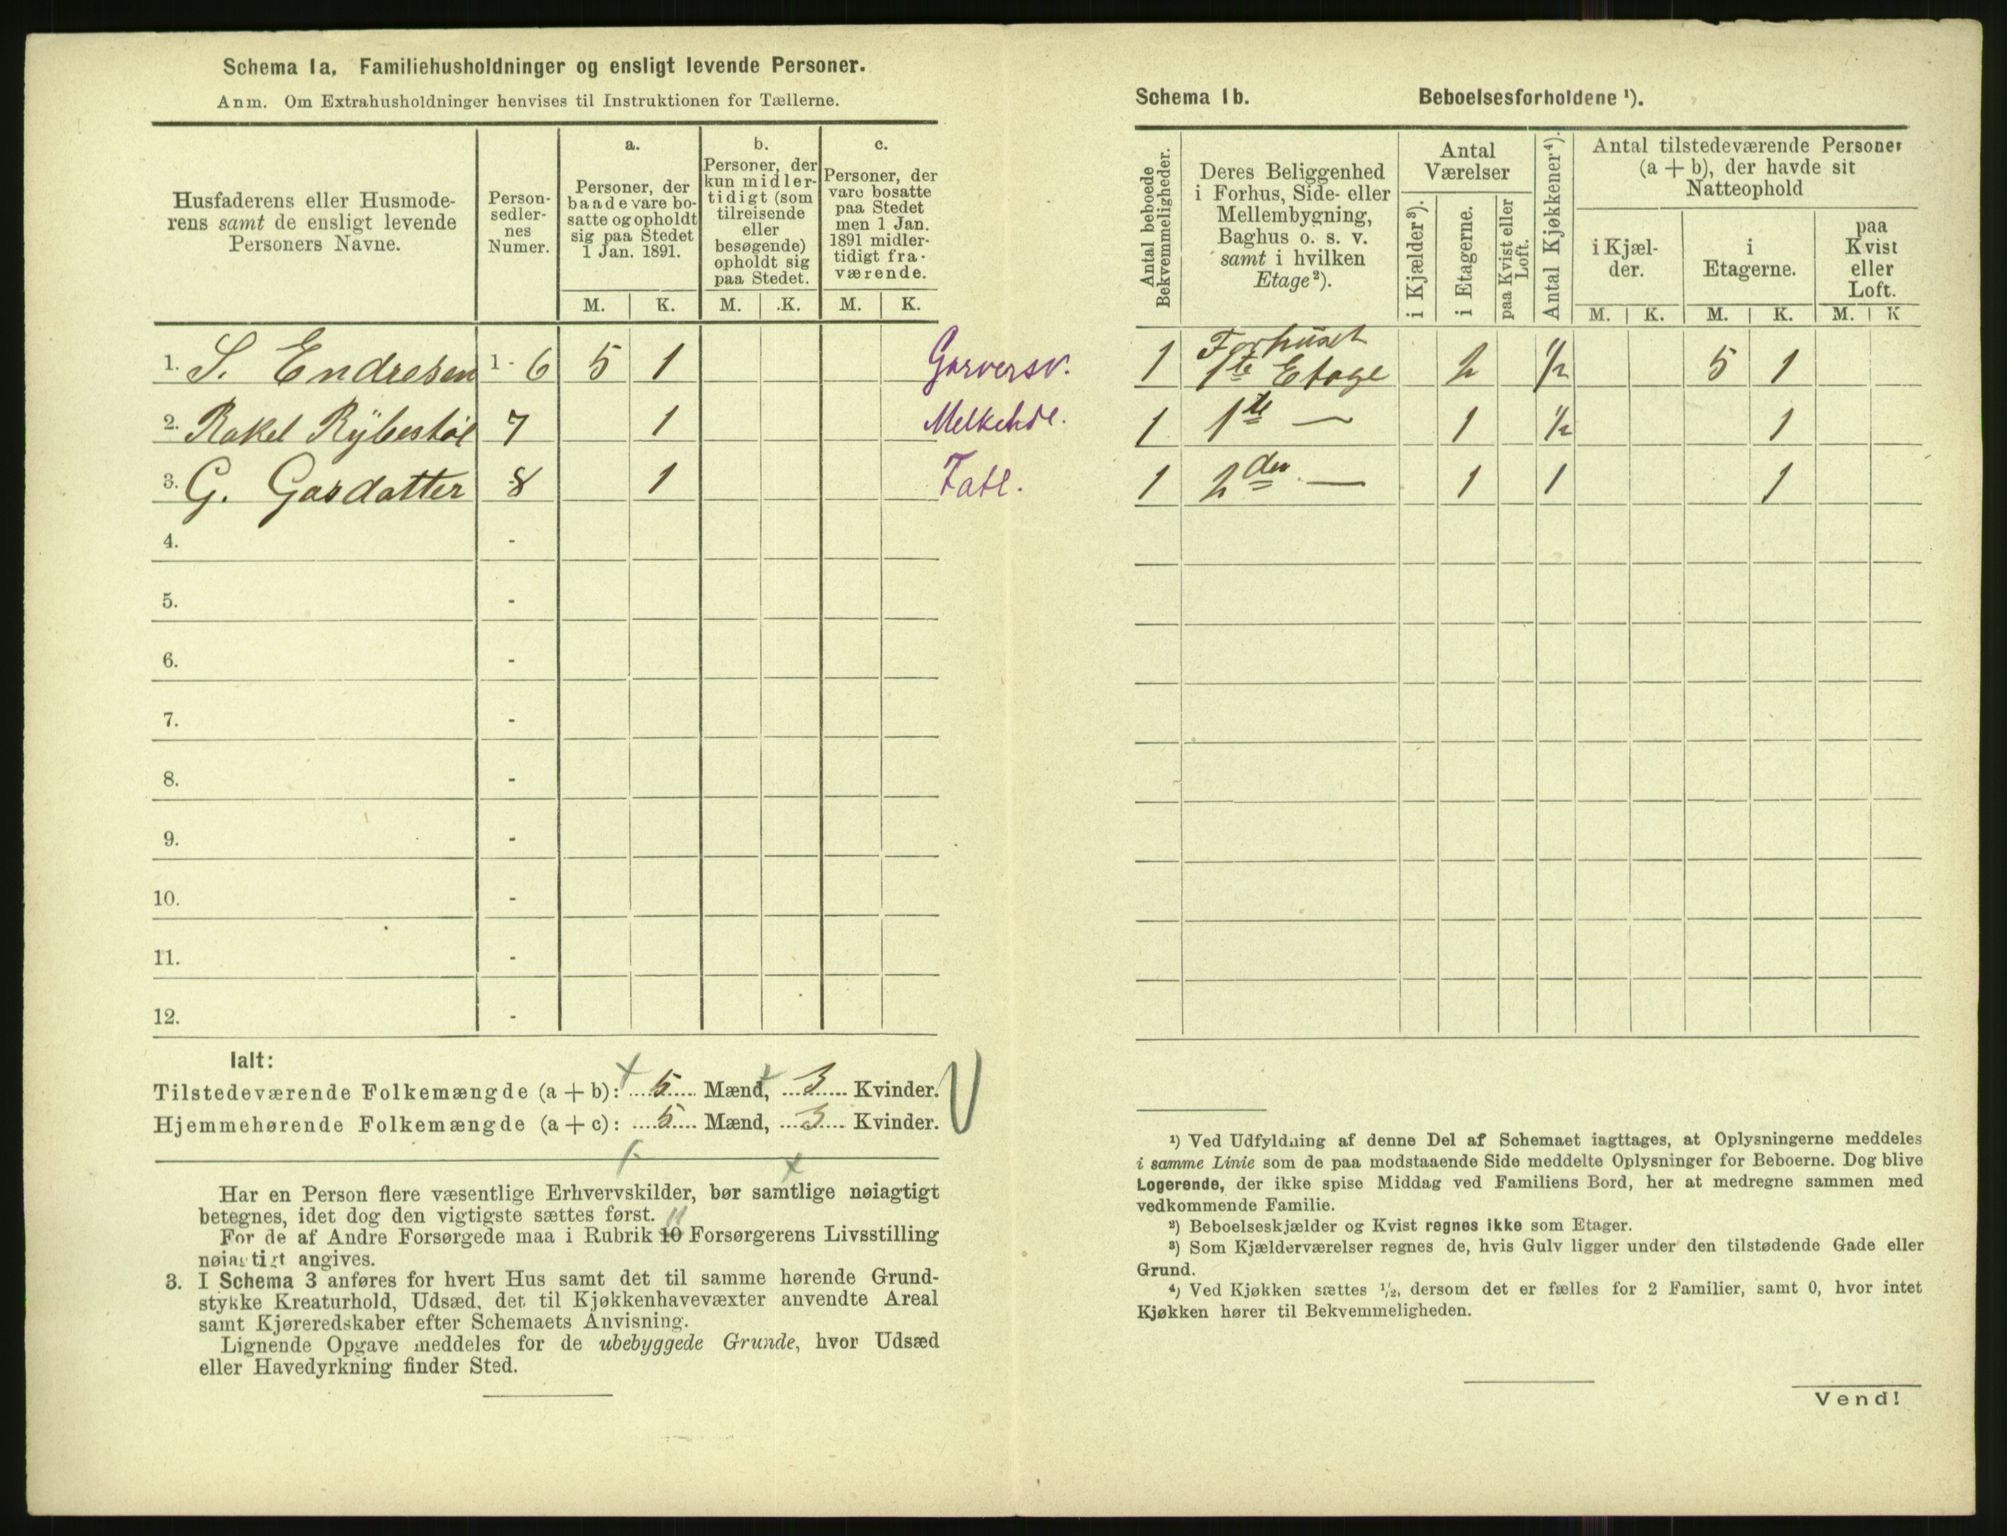 Schema 1a. Familiehusholdninger og ensligt levende Personer.
Anm. Om Extrahusholdninger henvises til Instruktionen for Tællerne.
Husfaderens eller Husmode-
rens samt de ensligt levende
Personers Navne.
Person-
sedler-
nes
Numer.
a.
Personer, der
baade vare bo-
satte og opholdt
sig paa Stedet
1 Jan. 1891.
b.
Personer, der
kun midler-
tidigt (som
tilreisende
eller
besøgende)
opholdt sig
paa Stedet.
c.
Personer, der
vare bosatte
paa Stedet
men 1 Jan.
1891 midler-
tidigt fra-
værende.
M. K. M. K. M. K.
1. S. Endresen 1 - 6 5 1 Garversv.
2. Rakel Rybestøl 7 1
3. G. Gasdatter 8 1 Fatl.
4. -
5. -
6. -
7. -
8. -
9. -
10. -
11. -
12. -
Ialt:
Tilstedeværende Folkemængde (a + b): 5 Mænd, 3 Kvinder.
Hjemmehørende Folkemængde (a + c): 5 Mænd, 3 Kvinder.
Har en Person flere væsentlige Erhvervskilder, bør samtlige nøiagtigt
betegnes, idet dog den vigtigste sættes først.
11
For de af Andre Forsørgede maa i Rubrik 10 Forsørgerens Livsstilling
nøiagtigt angives.
3. I Schema 3 anføres for hvert Hus samt det til samme hørende Grund-
stykke Kreaturhold, Udsæd, det til Kjøkkenhavevæxter anvendte Areal
samt Kjøreredskaber efter Schemaets Anvisning.
Lignende Opgave meddeles for de ubebyggede Grunde, hvor Udsæd
eller Havedyrkning finder Sted.
Schema 1b. Beboelsesforholdene ¹).
Antal beboede
Bekvemmeligheder.
Deres Beliggenhed
i Forhus, Side- eller
Mellembygning,
Baghus o. s. v.
samt i hvilken
Etage ²).
Antal
Værelser
i Kjælder ³).
i Etagerne.
paa Kvist eller
Loft.
Antal Kjøkkener ⁴).
Antal tilstedeværende Personer
(a + b), der havde sit
Natteophold
i Kjæl-
der.
i
Etagerne.
paa
Kvist
eller
Loft.
M. K. M. K. M. K
Forhuset
1 1te Etage 2 1/2 5 1
1 1te — 1 1/2 1
1 2den — 1 1 1
¹) Ved Udfyldning af denne Del af Schemaet iagttages, at Oplysningerne meddeles
i samme Linie som de paa modstaaende Side meddelte Oplysninger for Beboerne. Dog blive
Logerende, der ikke spise Middag ved Familiens Bord, her at medregne sammen med
vedkommende Familie.
²) Beboelseskjælder og Kvist regnes ikke som Etager.
³) Som Kjælderværelser regnes de, hvis Gulv ligger under den tilstødende Gade eller
Grund.
⁴) Ved Kjøkken sættes ¹/₂, dersom det er fælles for 2 Familier, samt 0, hvor intet
Kjøkken hører til Bekvemmeligheden.
Vend!